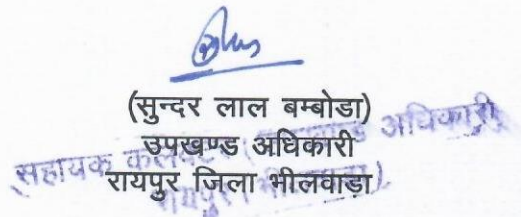 (सुन्दर लाल बम्बोडा)
उपखण्ड अधिकारी
रायपुर जिला भीलवाडा
सहायक कलक्टर अधिकारी